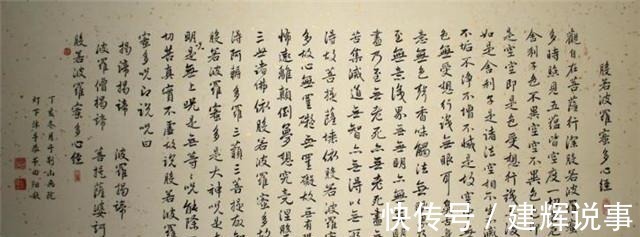 般若波羅蜜多心經
觀自在菩薩行深般若波
多時照見五蘊皆空度一切
舍利子色不異空空不異色
是空空即是色受想行識
如是舍利子是諸法空相不
不垢不淨不增不減是故空
色無受想行識無眼耳
意無色聲香味觸法無
至無意識界無無明亦無
盡乃至無老死亦無老死盡
苦集滅道無智亦無得以無
故菩提薩埵依般若波羅
多故心無罣礙無罣礙故無有
怖遠離顛倒夢想究竟涅槃
三世諸佛依般若波羅蜜多故
得阿耨多羅三藐三菩提故知
般若波羅蜜多是大神咒是
明咒是無上咒是無等咒能除
切苦真實不虛故說般若波羅
蜜多咒即說咒曰
揭諦揭諦 波羅揭諦
波羅僧揭諦 菩提薩婆訶
般若波羅蜜多心經
丁亥冬月于荊山画院
灯下沐手恭录
快传号 / 建辉说事